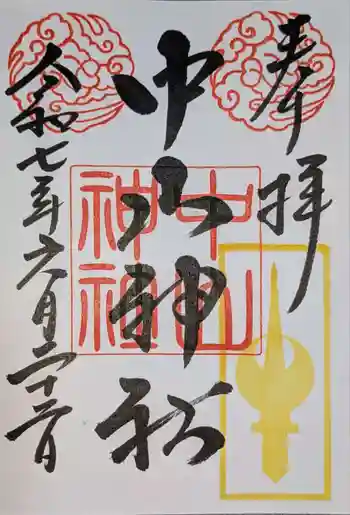 奉拝
中山神社
中山
神社
令和七年六月二十二日